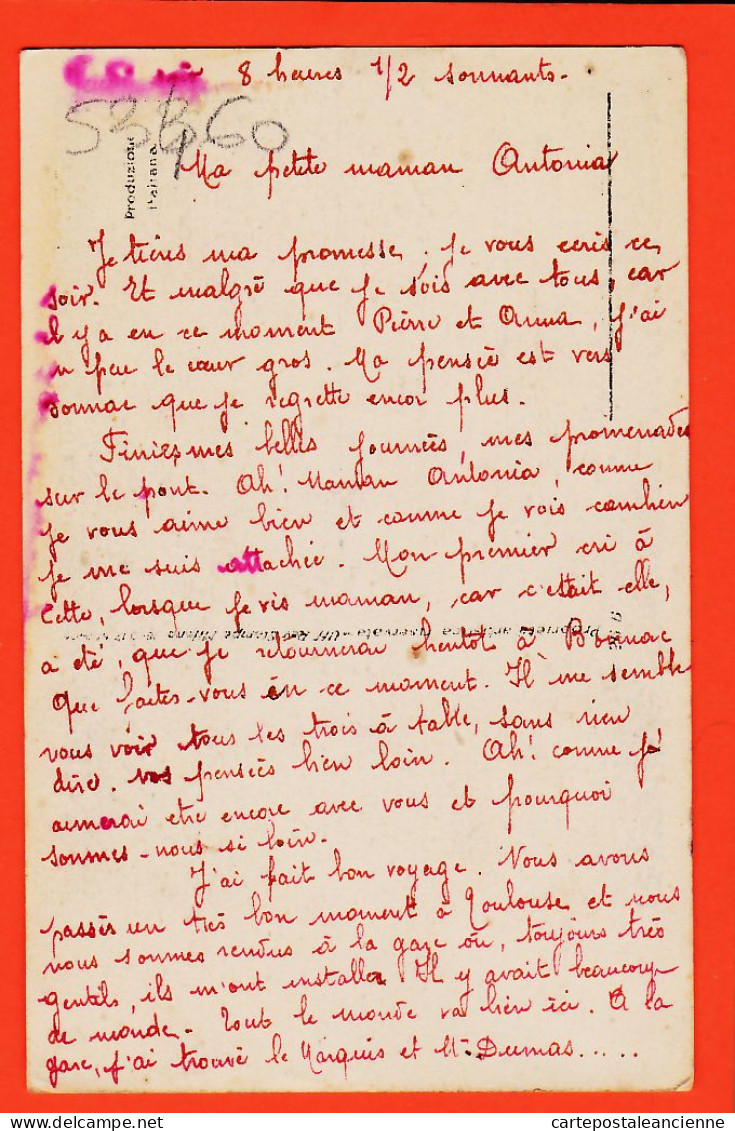 8 heures 1/2 sonnants.
53360
Produzione
Italiana
Ma petite maman Antonia
Je tiens ma promesse, je vous ecris ce
soir. Et malgré que je sois avec tous, car
il y a en ce moment Pierre et Anna, j'ai
un peu le cœur gros. Ma pensée est vers
que je regrette encor plus.
Finies mes belles journées, mes promenades
sur le pont. Ah! Maman Antonia, comme
je vous aime bien et comme je vois combien
je me suis attachée. Mon premier cri à
Cette, lorsque je vis maman, car c'était elle,
a été, que je retournerai bientôt à
Que faites-vous en ce moment. Il me semble
vous voir tous les trois à table, sans rien
dire. vos pensées bien loin. Ah! comme j'
aimerai etre encore avec vous et pourquoi
sommes-nous si loin.
J'ai fait bon voyage. Nous avons
passés un très bon moment à Toulouse et nous
nous sommes rendus à la gare où, toujours très
gentils, ils m'ont installer. Il y avait beaucoup
de monde. Tout le monde va bien ici. A la
gare, j'ai trouvé le Marquis et Mr Dumas.....
cartepostaleancienne
cartepostaleancienne.com